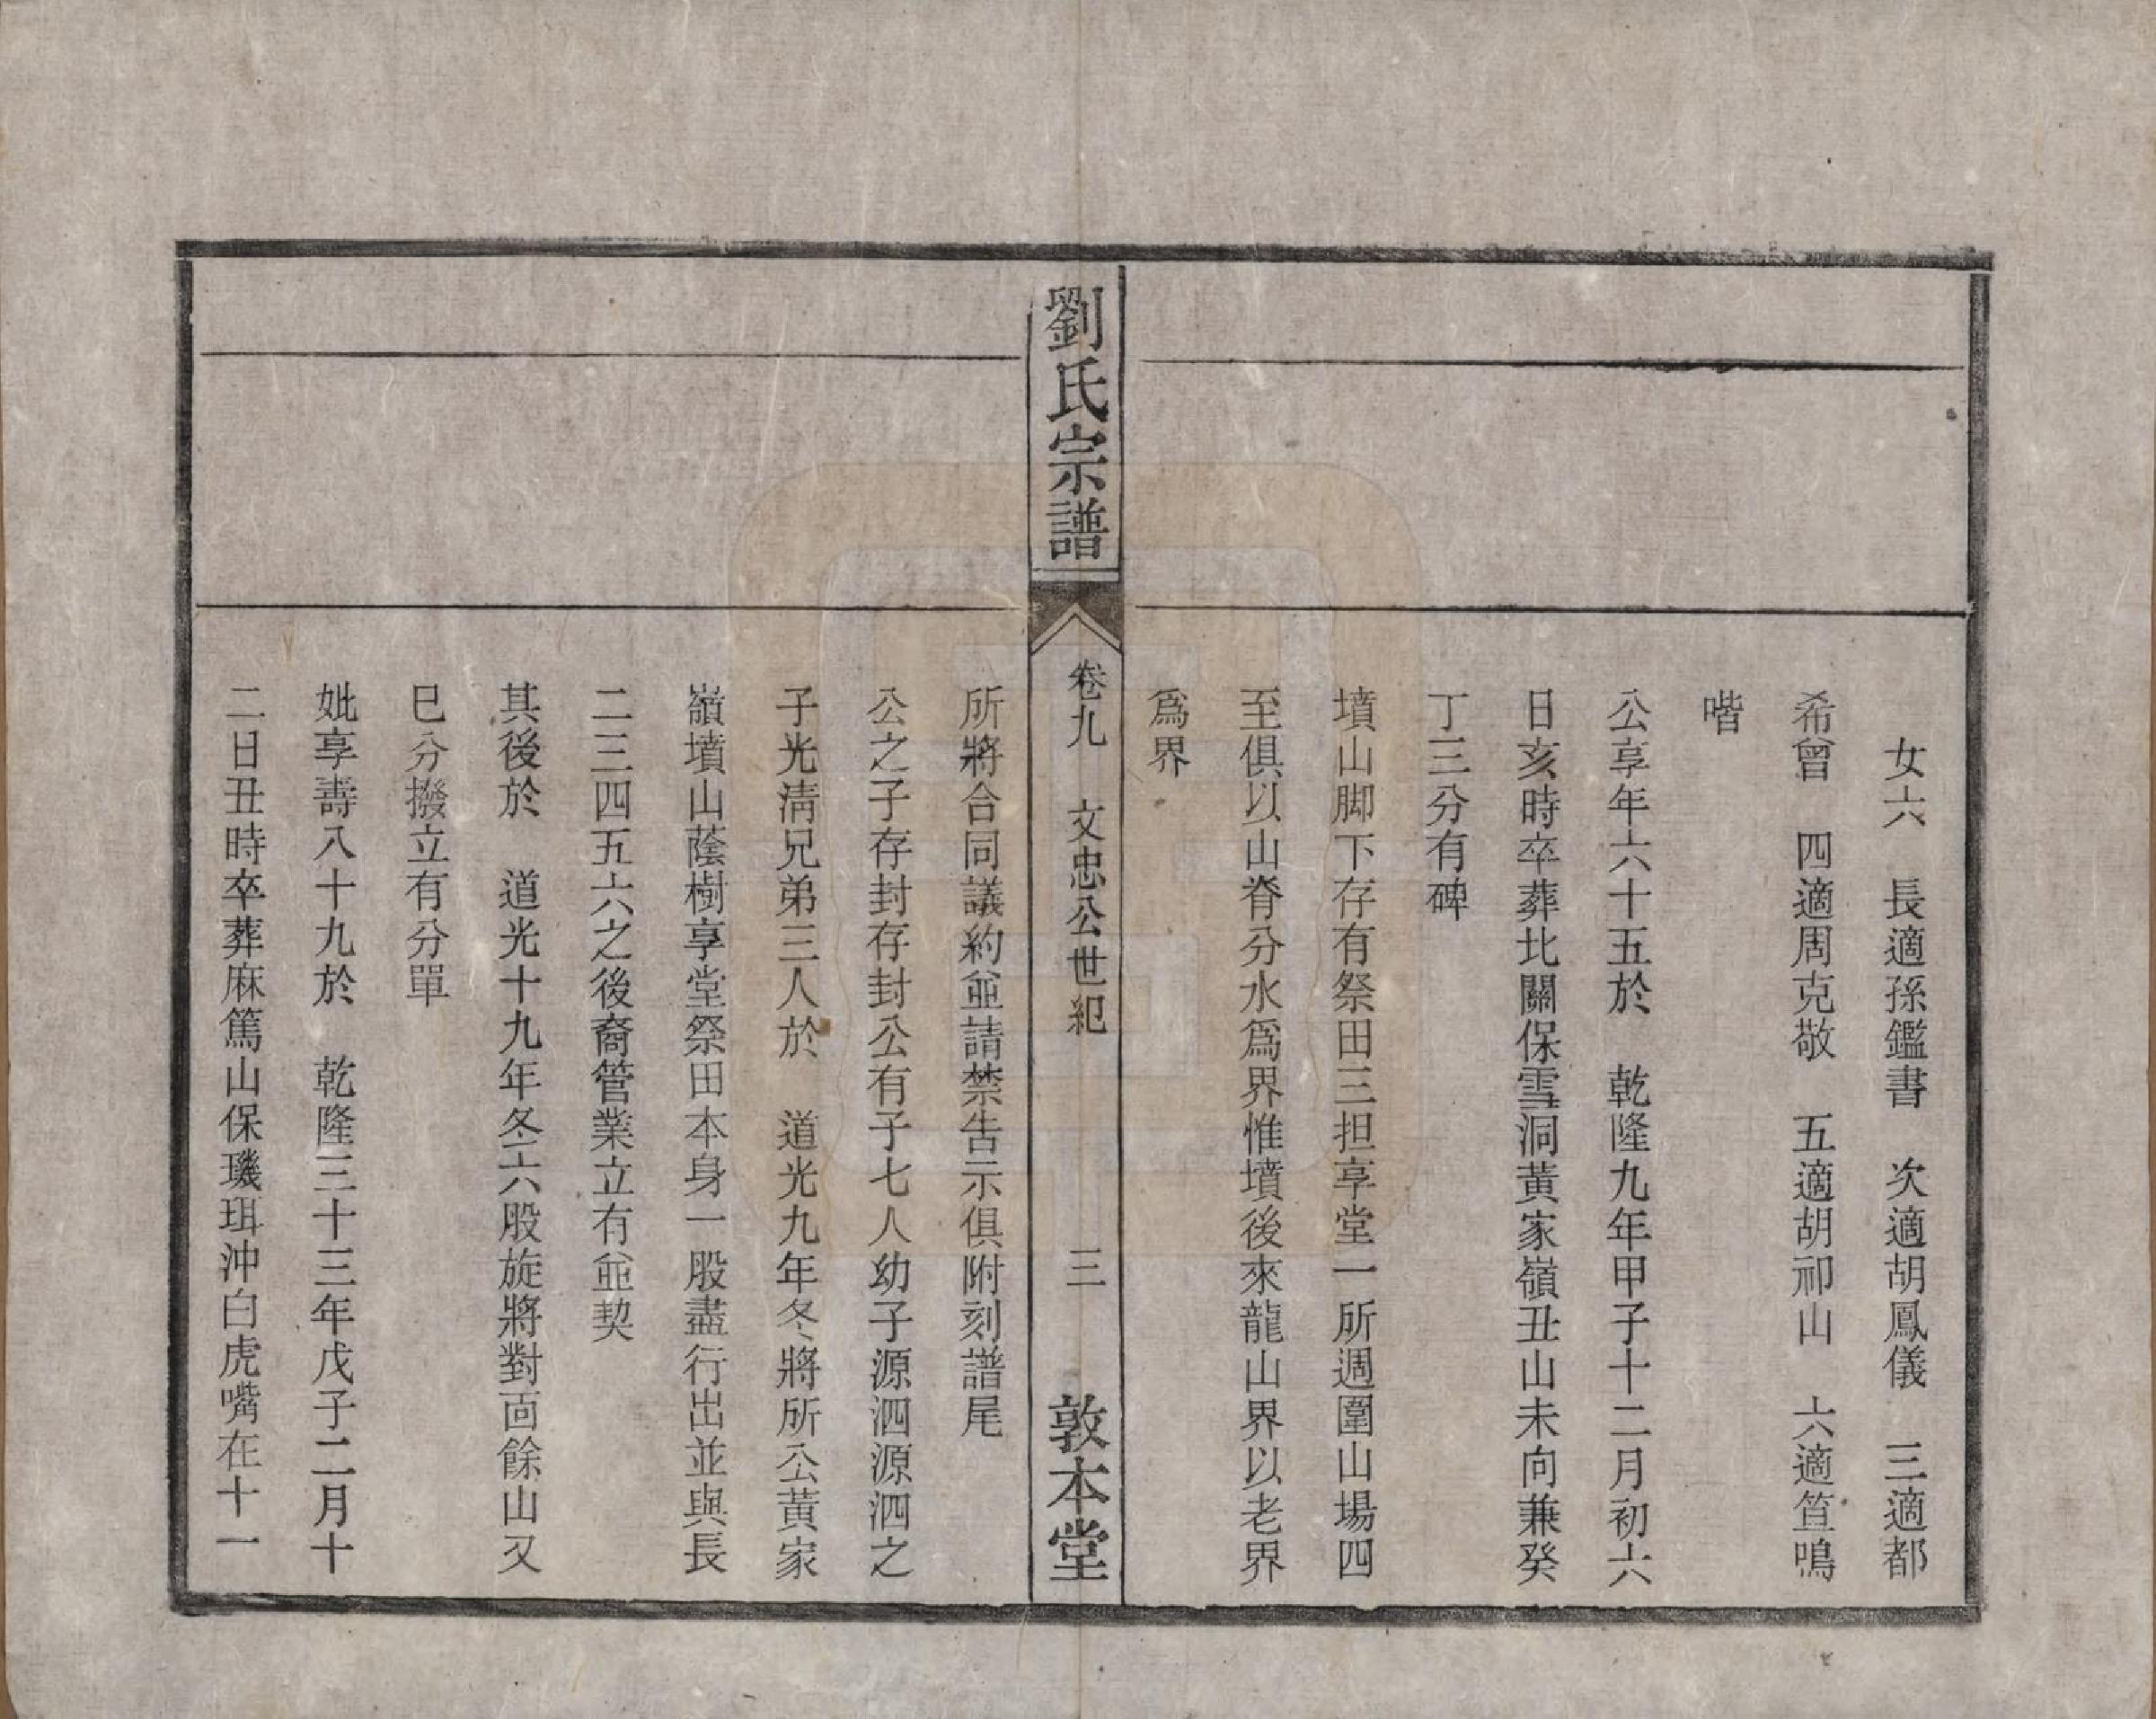 女六　長適孫鑑書　次適胡鳳儀　三適都
希曾　四適周克敬　五適胡祁山　六適笪鳴
喈
公享年六十五於　乾隆九年甲子十二月初六
日亥時卒葬北關保雪洞黃家嶺丑山未向兼癸
丁三分有碑
墳山脚下存有祭田三担享堂一所週圍山場四
至俱以山脊分水爲界惟墳後來龍山界以老界
爲界
劉氏宗譜　卷九　文忠公世紀　三　敦本堂
所將合同議約並請禁告示俱附刻譜尾
公之子存封存封公有子七人幼子源泗源泗之
子光淸兄弟三人於　道光九年冬將所公黃家
嶺墳山蔭樹享堂祭田本身一股盡行出並與長
二三四五六之後裔管業立有並契
其後於　道光十九年冬六股旋將對面餘山又
巳分撥立有分單
妣享壽八十九於　乾隆三十三年戊子二月十
二日丑時卒葬麻篤山保璣珥沖白虎嘴在十一